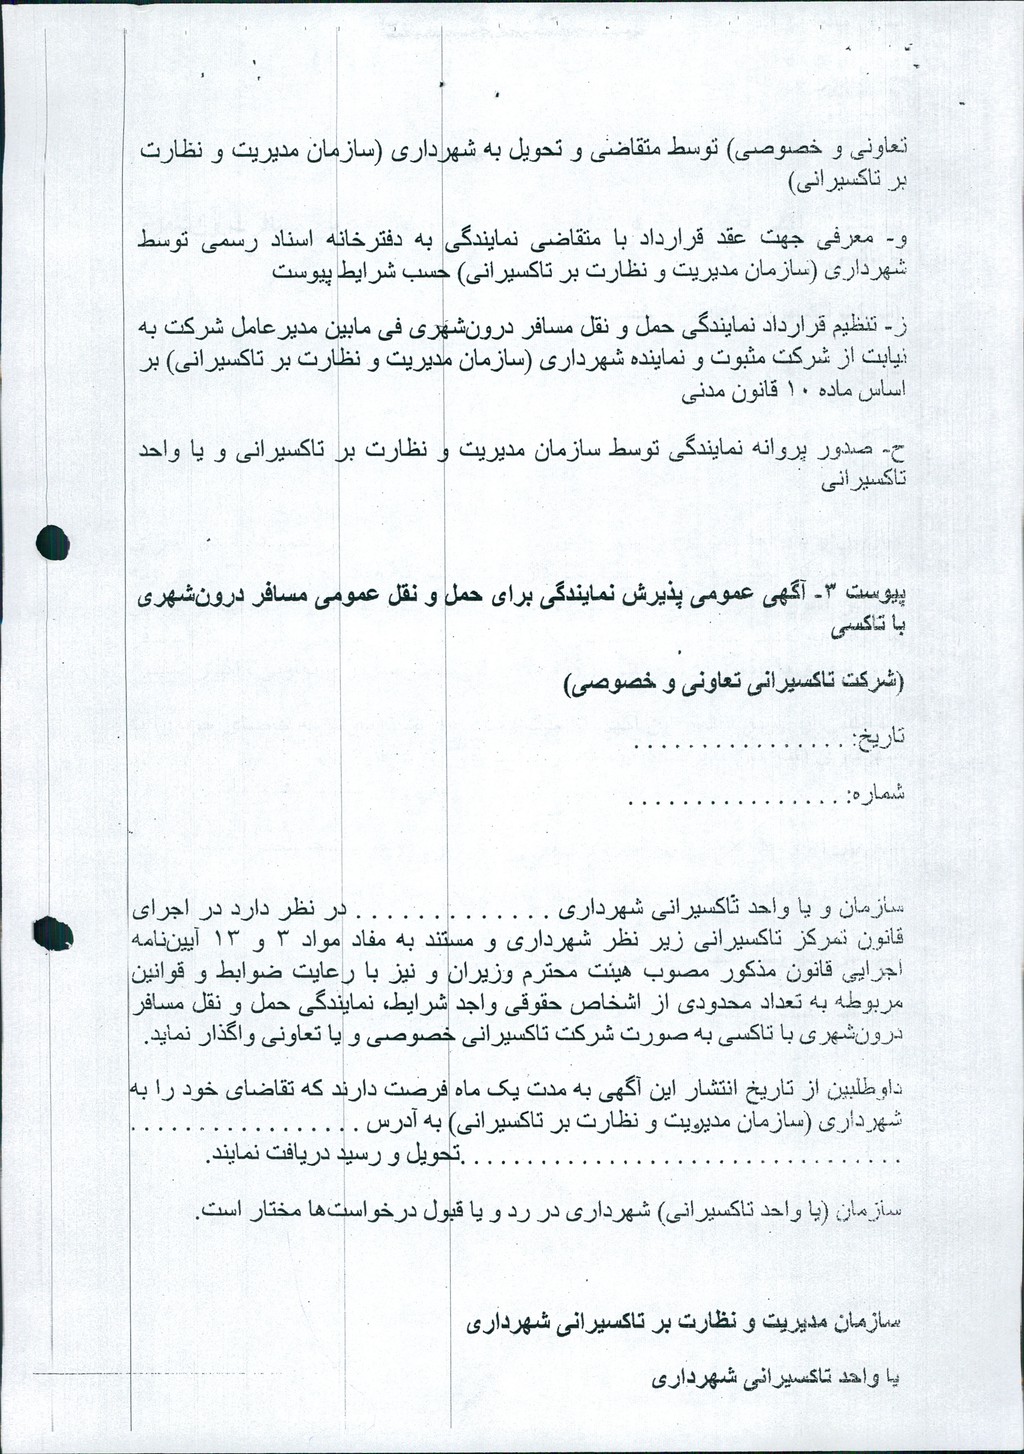 تعاونی و خصوصی) توسط متقاضی و تحویل به شهرداری (سازمان مدیریت و نظارت
بر تاکسیرانی)
و- معرفی جهت عقد قرارداد با متقاضی نمایندگی به دفترخانه اسناد رسمی توسط
شهرداری (سازمان مدیریت و نظارت بر تاکسیرانی) حسب شرایط پیوست
ز- تنظیم قرارداد نمایندگی حمل و نقل مسافر درون‌شهری فی مابین مدیرعامل شرکت به
نیابت از شرکت مثبوت و نماینده شهرداری (سازمان مدیریت و نظارت بر تاکسیرانی) بر
اساس ماده ۱۰ قانون مدنی
ح- صدور پروانه نمایندگی توسط سازمان مدیریت و نظارت بر تاکسیرانی و یا واحد
تاکسیرانی
پیوست ۳- آگهی عمومی پذیرش نمایندگی برای حمل و نقل عمومی مسافر درون‌شهری
با تاکسی
(شرکت تاکسیرانی تعاونی و خصوصی)
تاریخ: . . . . . . . . . . . . . . . .
شماره: . . . . . . . . . . . . . . . .
سازمان و یا واحد تاکسیرانی شهرداری . . . . . . . . . . . . . . . در نظر دارد در اجرای
قانون تمرکز تاکسیرانی زیر نظر شهرداری و مستند به مفاد مواد ۳ و ۱۳ آیین‌نامه
اجرایی قانون مذکور مصوب هیئت محترم وزیران و نیز با رعایت ضوابط و قوانین
مربوطه به تعداد محدودی از اشخاص حقوقی واجد شرایط، نمایندگی حمل و نقل مسافر
درون‌شهری با تاکسی به صورت شرکت تاکسیرانی خصوصی و یا تعاونی واگذار نماید.
داوطلبین از تاریخ انتشار این آگهی به مدت یک ماه فرصت دارند که تقاضای خود را به
شهرداری (سازمان مدیریت و نظارت بر تاکسیرانی) به آدرس . . . . . . . . . . . . . . . . .
. . . . . . . . . . . . . . . . . . . . . . . . . . . . . . . . .تحویل و رسید دریافت نمایند.
سازمان (یا واحد تاکسیرانی) شهرداری در رد و یا قبول درخواست‌ها مختار است.
سازمان مدیریت و نظارت بر تاکسیرانی شهرداری
یا واحد تاکسیرانی شهرداری